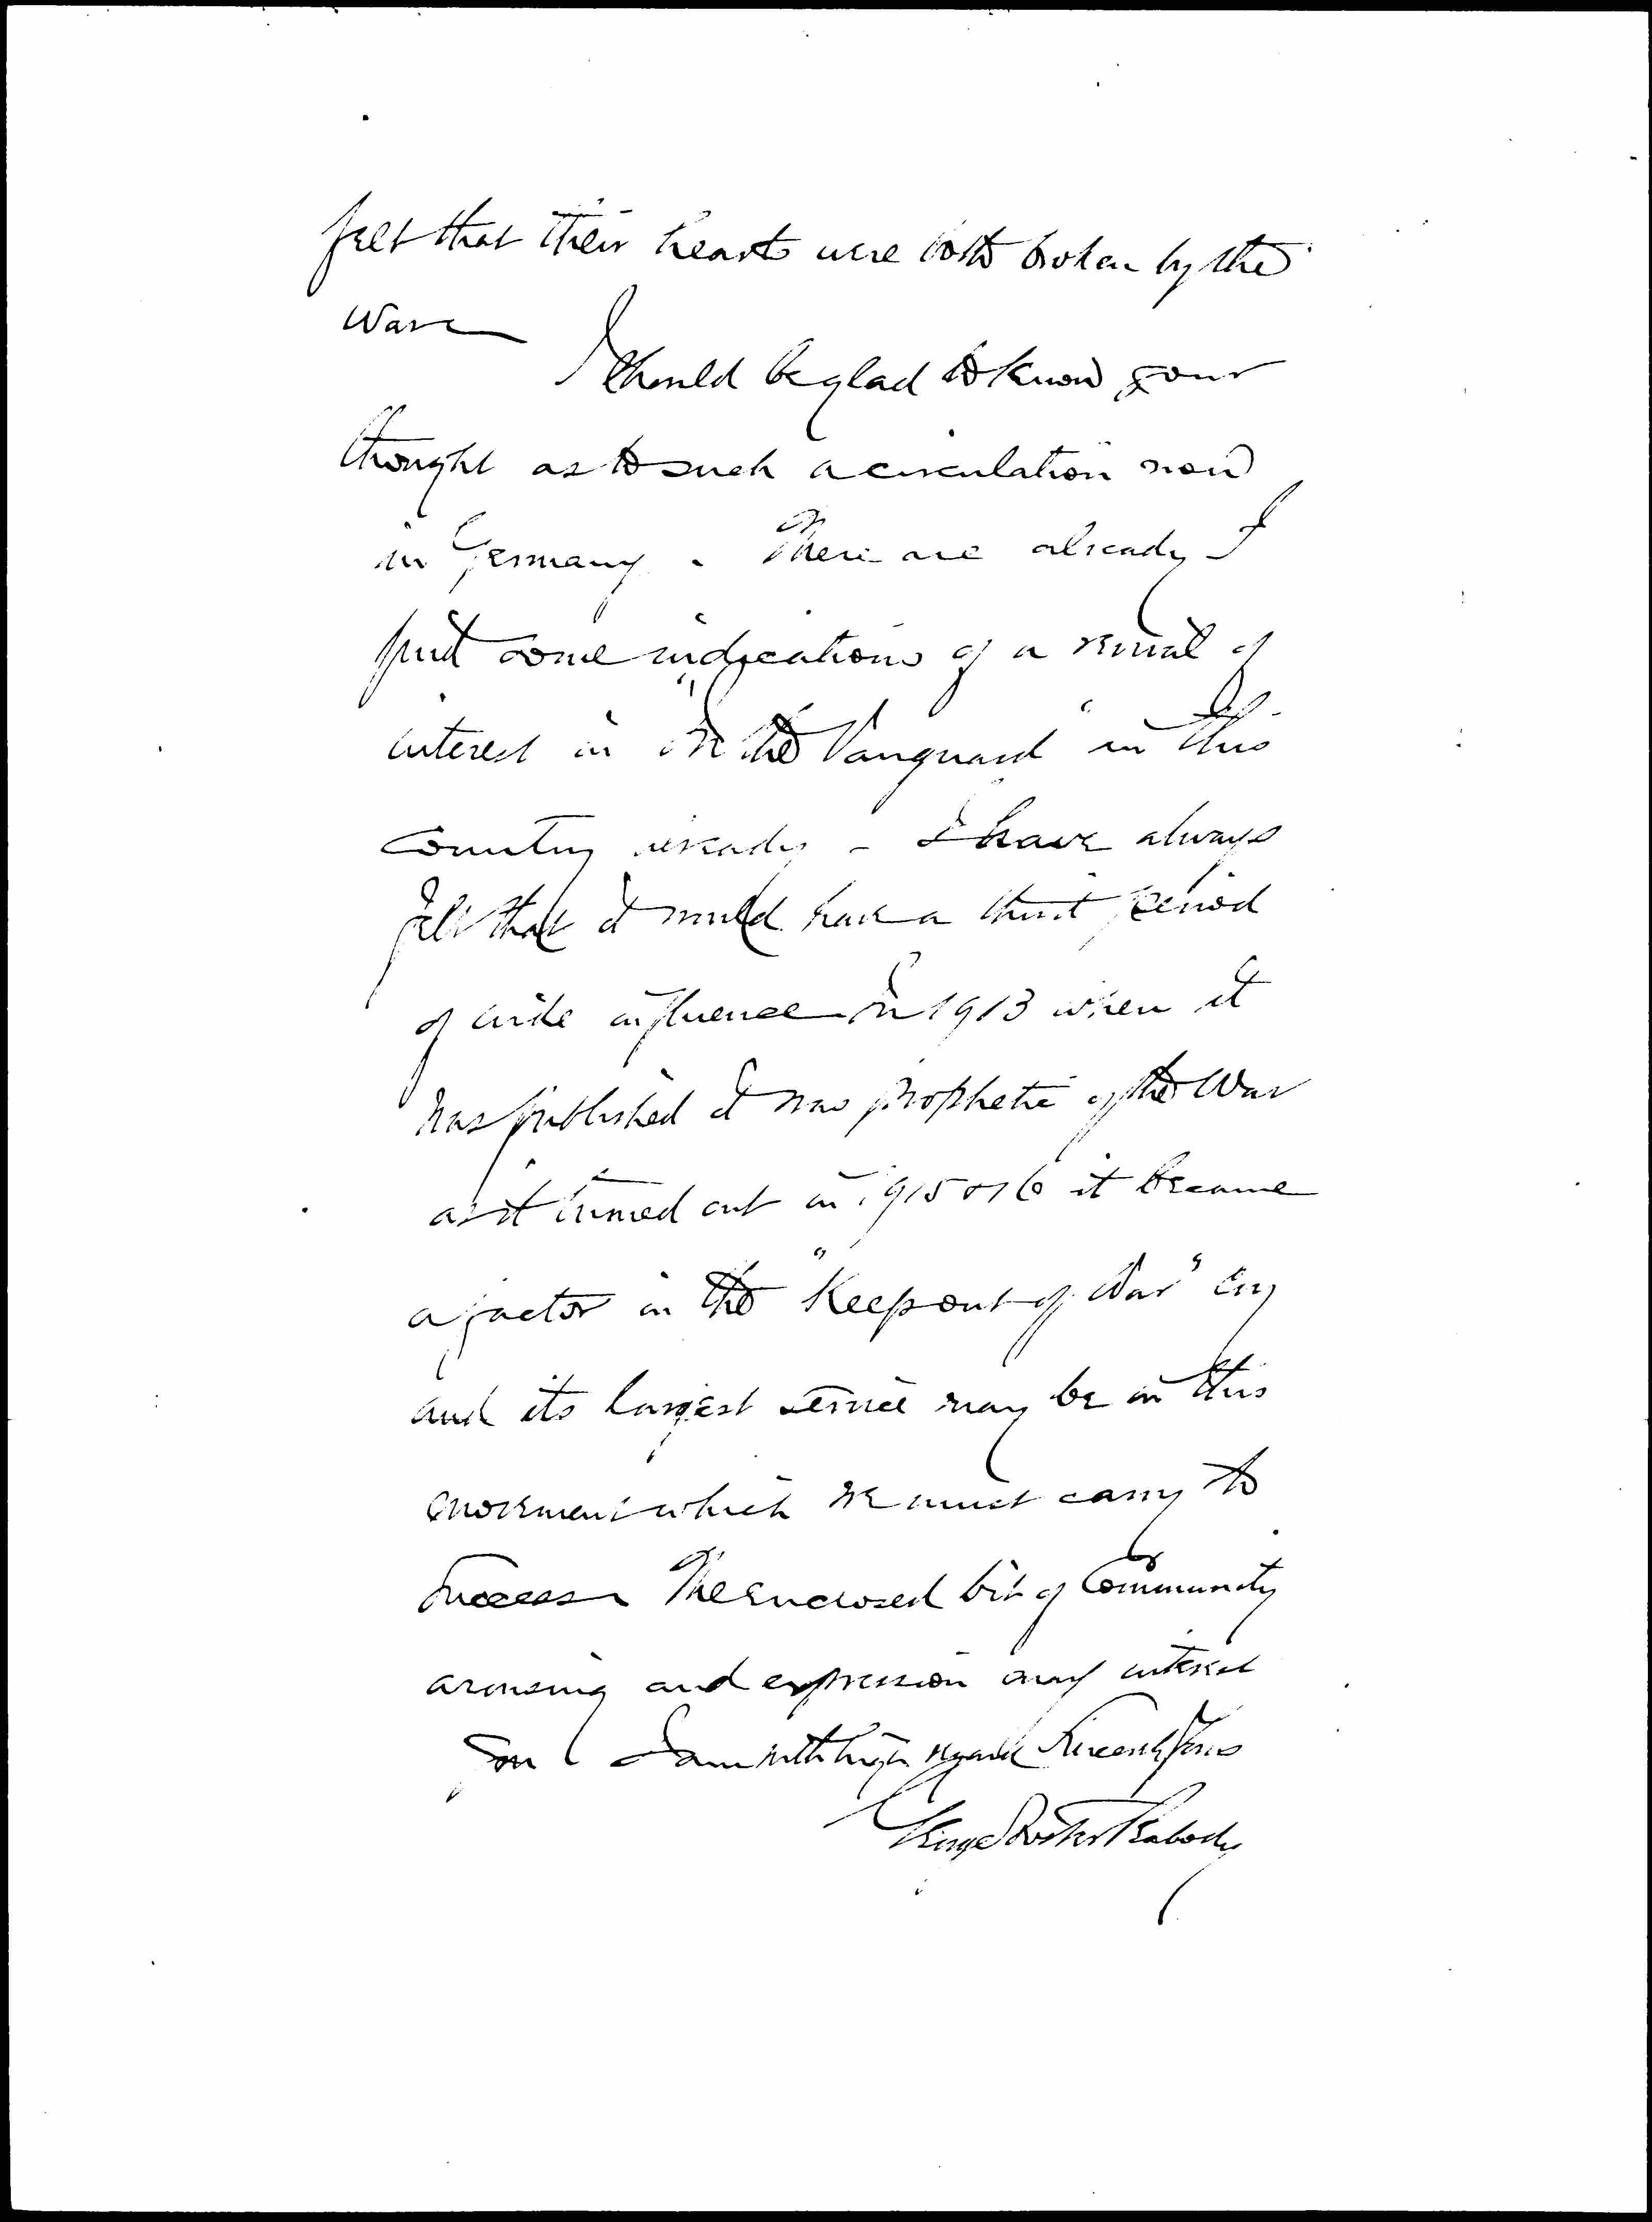 felt that their hearts were both broken by the
War
I should be glad to know your
thought as to such a circulation now
in Germany. There are already I
find some indications of a revival of
interest in "In the Vanguard" in this
country already - I have always
felt that it would have a third period
of wide influence in 1913 when it
was published it was prophetic of the War
as it turned out in 1915 & 16 it became
a factor in the "Keep out of War" cry
and its largest service may be in this
movement which we must carry to
success The enclosed bit of Community
arousing and expression may interest
you I am with high regards Sincerely Yours
George Foster Peabody